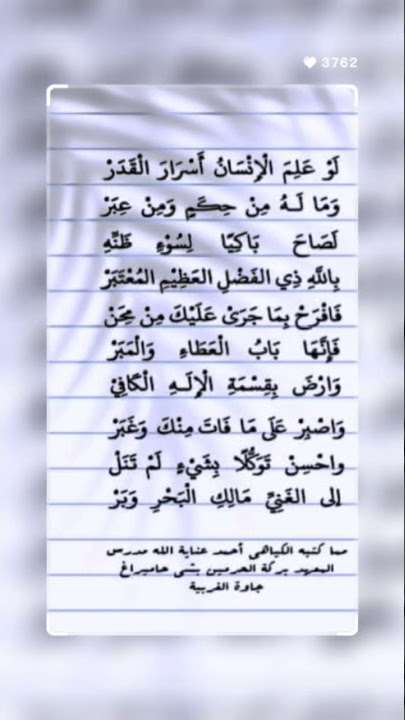 3762
لَوْ عَلِمَ الْإِنْسَانُ أَسْرَارَ الْقَدَرْ
وَمَا لَـهُ مِنْ حِكَـمٍ وَمِنْ عِبَرْ
لَصَاحَ بَاكِيًا لِسُوْءِ ظَنِّهِ
بِاللَّهِ ذِي الفَضْلِ العَظِيْمِ المُعْتَبَرْ
فَافْرَحْ بِمَا جَرَىْ عَلَيْكَ مِنْ مِحَنْ
فَإِنَّهَا بَابُ الْعَطَاءِ وَالْمَبَرْ
وَارْضَ بِقِسْمَةِ الْإِلَـهِ الْكَافِيْ
وَاصْبِرْ عَلَى مَا فَاتَ مِنْكَ وَغَبَرْ
واحْسِنْ تَوَكُّلًا بِشَيْءٍ لَمْ تَنَلْ
إلى الغَنِيِّ مَالِكِ الْبَحْرِ وَبَرْ
مما كتبه الكياهى أحمد عناية الله مدرس
المعهد بركة الحرمين بتـى جاميراغ
جاوة الغربية